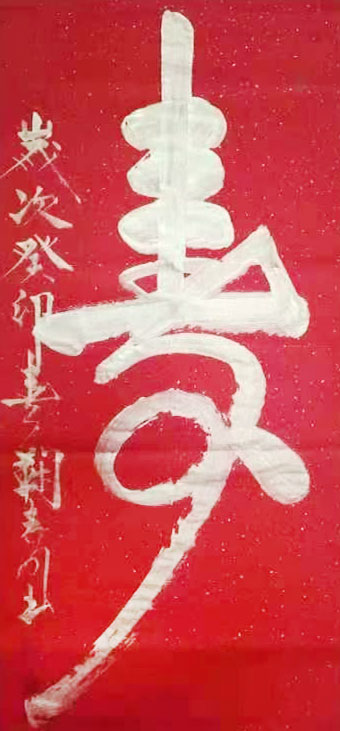 壽
歲次癸卯春